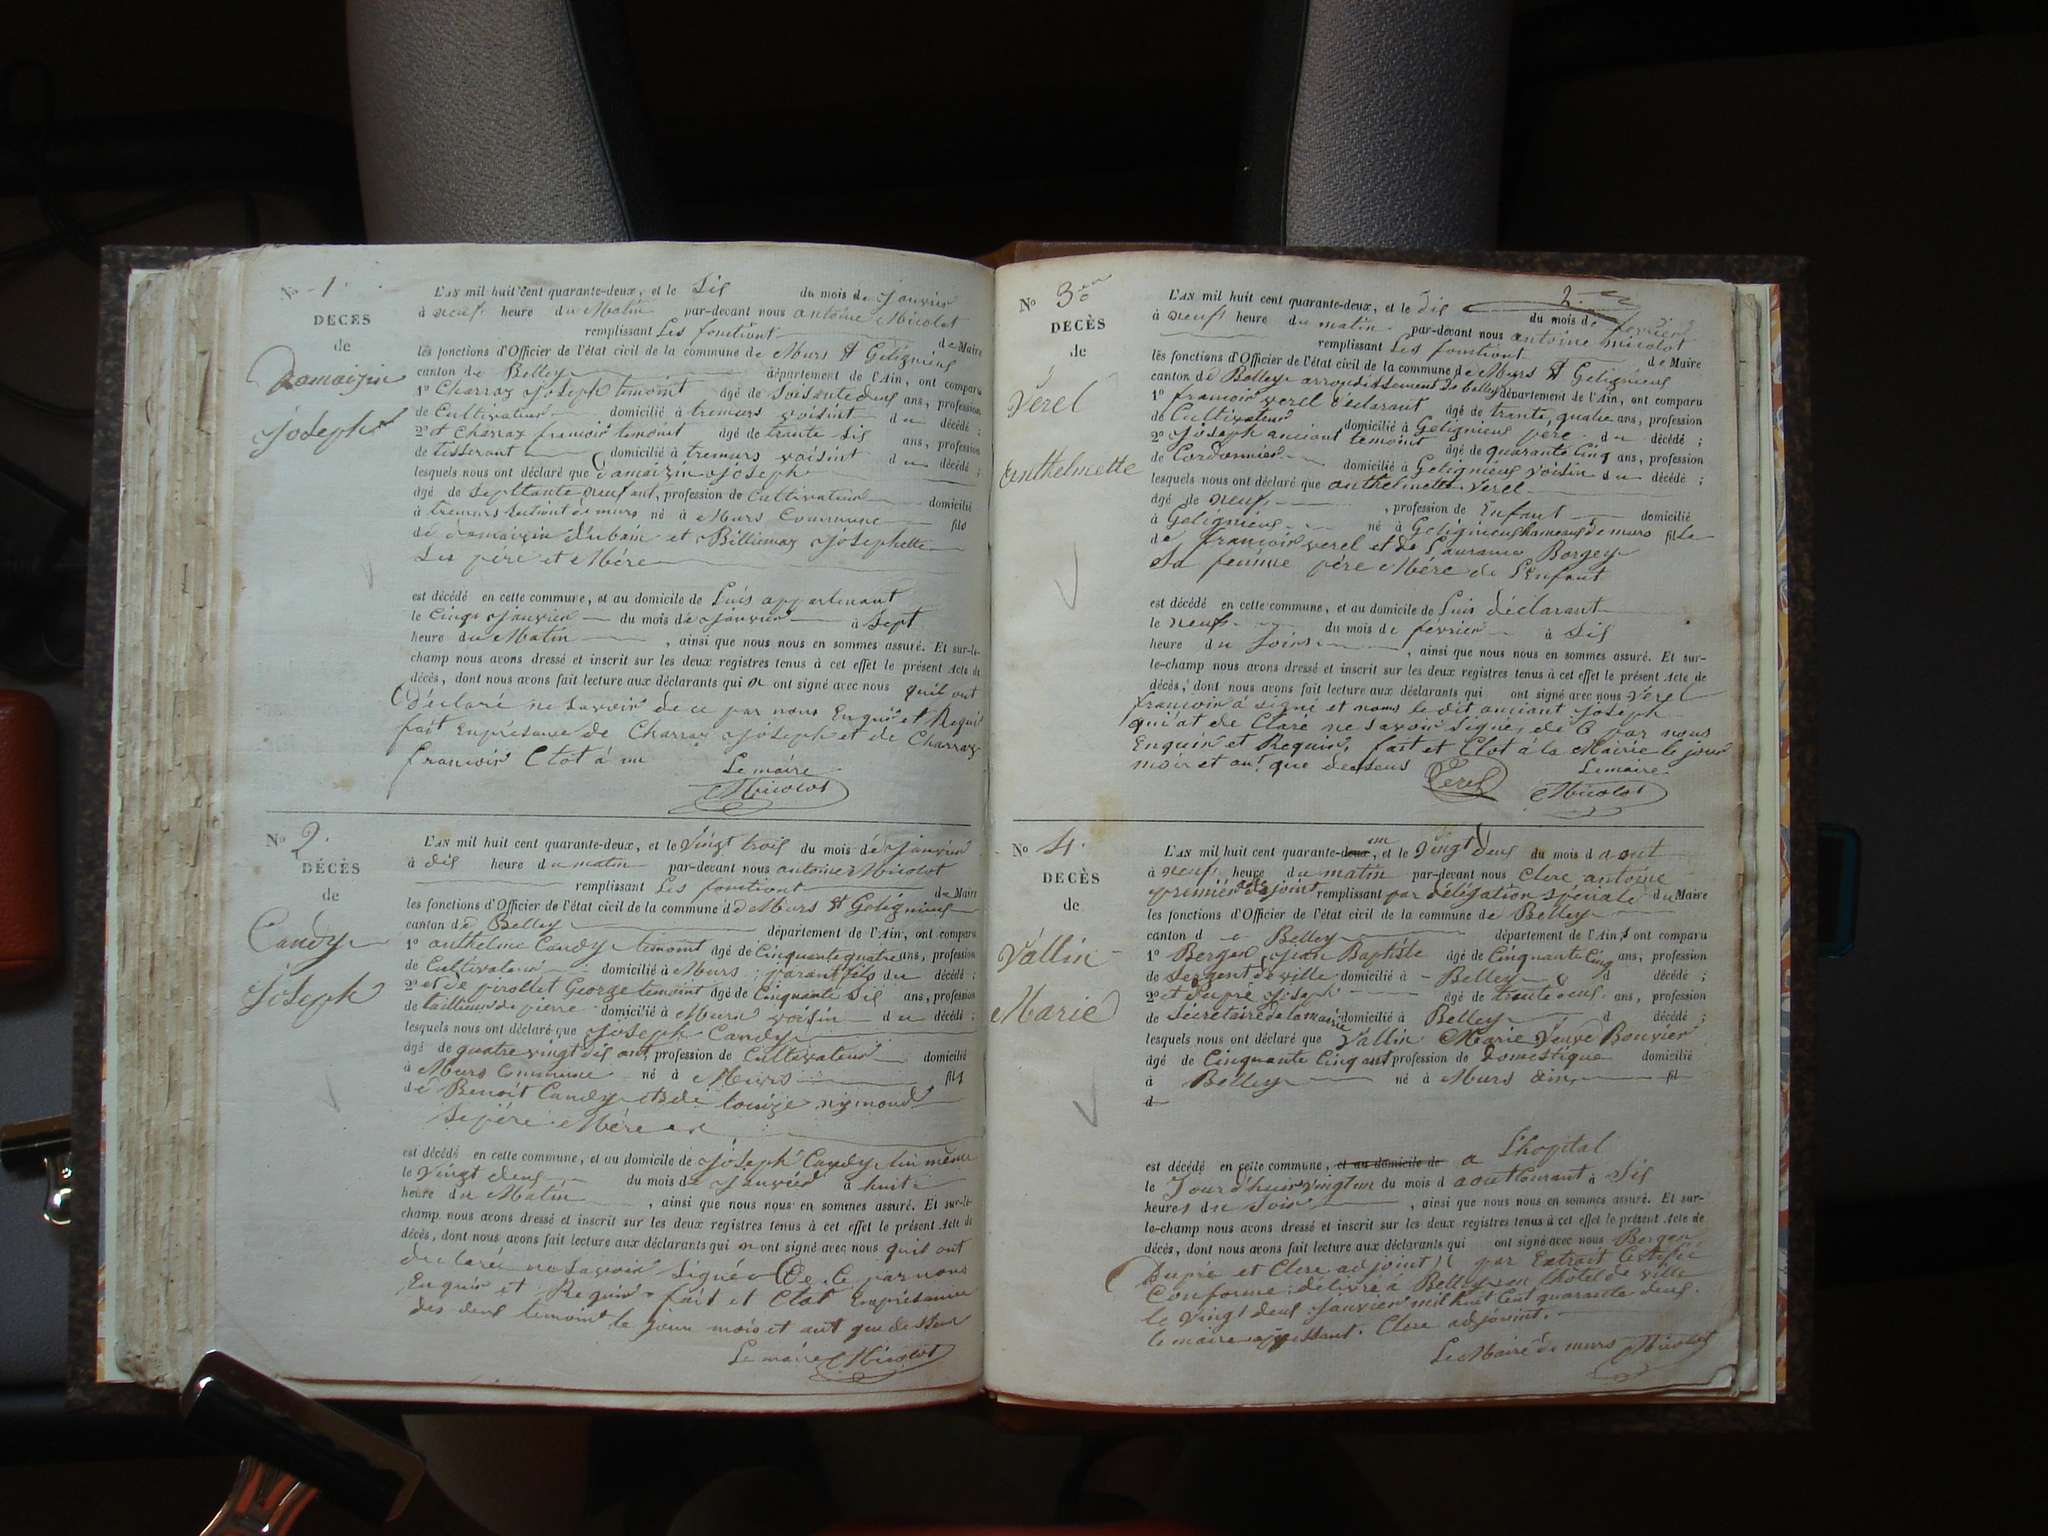 No 1.
DECÈS
de
Damaizin
Joseph
L'AN mil huit cent quarante-deux, et le Sis du mois de Janvier
à neuf heure du Matin par-devant nous antoine Micolot
remplissant Les fonctiont de Maire
les fonctions d'Officier de l'état civil de la commune de Murs et Gelignieus
canton de Belley département de l'Ain, ont comparu
1º Charraz Joseph temoint âgé de Soisante deus ans, profession
de Cultivateur domicilié à tremurs voisint du décédé ;
2º et Charraz francois temoint âgé de trante Sis ans, profession
de tisserant domicilié à tremurs voisint du décédé ;
lesquels nous ont déclaré que damaizin Joseph
âgé de Septtante neuf ant, profession de Cultivateur domicilié
à tremurs de murs né à Murs Commune fils
de damaizin Urbain et Billiemaz Josephette
Ses père et Mère
est décédé en cette commune, et au domicile de Luis appartenant
le Cinqs Janvier du mois de Janvier à Sept
heure du Matin , ainsi que nous nous en sommes assuré. Et sur-le-
champ nous avons dressé et inscrit sur les deux registres tenus à cet effet le présent Acte de
décès, dont nous avons fait lecture aux déclarants qui n ont signé avec nous quil ont
Déclaré ne Savoir de ce par nous Enquis et Requis
fait Enprésance de Charraz Joseph et de Charraz
francois Clot à mu
Le maire
Micolot
No 2.
DÉCÈS
de
Candy
Joseph
L'AN mil huit cent quarante-deux, et le Vingt trois du mois de Janvier
à dis heure du matin par-devant nous antoine Micolot
remplissant Les fonctiont de Maire
les fonctions d'Officier de l'état civil de la commune de Murs et Gelignieus
canton de Belley département de l'Ain, ont comparu
1º anthelme Candy temoint âgé de Cinquante quatre ans, profession
de Cultivateur domicilié à Murs parant fils du décédé ;
2º et de pirollet George temoint âgé de Cinquante Sis ans, profession
de tailleur de pierre domicilié à Murs voisin du décédé ;
lesquels nous ont déclaré que Joseph Candy
âgé de quatre vingt dis ant, profession de Cultivateur domicilié
à Murs Commune né à Murs fils
de Benoit Candy et de Louize nymond
Se père Mère
est décédé en cette commune, et au domicile de Joseph Candy lui même
le Vingt deus du mois de Janvier à huit
heure du Matin , ainsi que nous nous en sommes assuré. Et sur-le-
champ nous avons dressé et inscrit sur les deux registres tenus à cet effet le présent Acte de
décès, dont nous avons fait lecture aux déclarants qui n ont signé avec nous quil ont
declaré ne Savoir Signée De Ce par nous
Enquis et Requis fait et Clot Enprésance
des deus temoint le jour mois et ant que dessus
Le maire Micolot
2.
No 3
DECÈS
de
Verel
Anthelmette
L'AN mil huit cent quarante-deux, et le dis du mois de fevrier
à neuf heure du matin par-devant nous antoine micolot
remplissant Les fonctiont de Maire
les fonctions d'Officier de l'état civil de la commune de Murs et Gelignieus
canton de Belley arrondissement de belley département de l'Ain, ont comparu
1º francois verel déclarant âgé de trante quatre ans, profession
de Cultivateur domicilié à Gelignieus père du décédé ;
2º Joseph anciant temoint âgé de quarante Cinq ans, profession
de Cordonnier domicilié à Gelignieus voisin du décédé ;
lesquels nous ont déclaré que anthelmette Verel
âgé de neuf , profession de Enfant domicilié
à Gelignieus né à Gelignieus hameaus de murs fille
de francois verel et de Laurance Borgey
Sa femme père Mère de L'Enfant
est décédé en cette commune, et au domicile de Luis déclarant
le neuf du mois de février à Sis
heure du Soir , ainsi que nous nous en sommes assuré. Et sur-
le-champ nous avons dressé et inscrit sur les deux registres tenus à cet effet le présent Acte de
décès, dont nous avons fait lecture aux déclarants qui ont signé avec nous Verel
francois à signé et nous le dit anciant Joseph
qui at de Claré ne Savoir Signé, de C par nous
Enquis et Requis, fait et Clot à la Mairie le jour
mois et an que dessus
Verel
Le maire
Micolot
No 4.
DECÈS
de
Vallin
Marie
L'AN mil huit cent quarante-deux un, et le Vingt deus du mois d aout
à neuf heure du matin par-devant nous Clerc antoine
premier adjoint remplissant par délégation spéciale du Maire
les fonctions d'Officier de l'état civil de la commune de Belley
canton de Belley département de l'Ain, ont comparu
1º Berger Jean Baptiste âgé de Cinquante Cinq ans, profession
de Sergent de ville domicilié à Belley d décédé ;
2º et Dupré Joseph âgé de trante deus ans, profession
de Sécrétaire de la mairie domicilié à Belley d décédé ;
lesquels nous ont déclaré que Vallin Marie Veuve Bouvier
âgé de Cinquante Cinq ant profession de Domestique domicilié
à Belley né à Murs ain, fil
d
est décédé en cette commune, et au domicile de a L'hopital
le Jour d'hier vingt un du mois d aout Courant à Sis
heures du Soir , ainsi que nous nous en sommes assuré. Et sur-
le-champ nous avons dressé et inscrit sur les deux registres tenus à cet effet le présent Acte de
décès, dont nous avons fait lecture aux déclarants qui ont signé avec nous Berger
Dupré et Clerc adjoint par Extrait Certifié
Conforme délivré à Belley en l'hotel de ville
le Vingt deus Janvier mil huit Cent quarante deus.
le maire Clerc adjoint.
Le Maire de murs Micolot